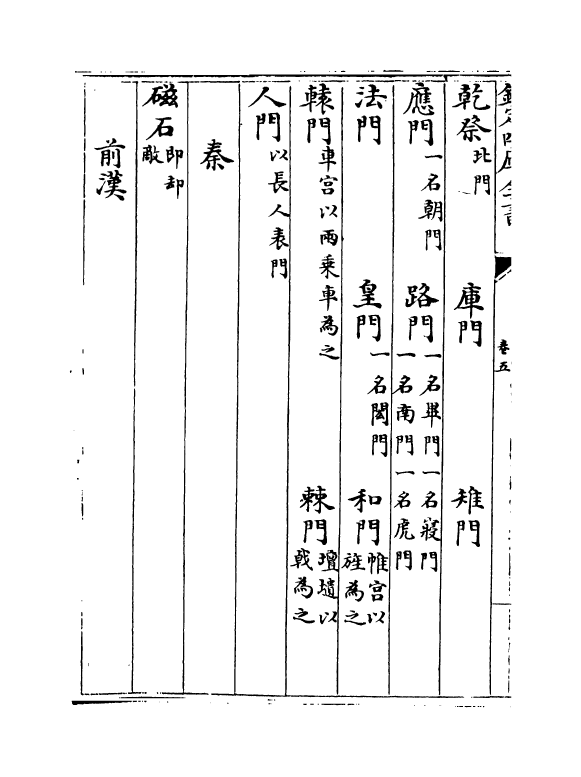 欽定四庫全書
卷五
乾祭北門 庫門 雉門
應門一名朝門 路門一名畢門一名寢門一名南門一名虎門
法門 皇門一名閎門 和門帷宫以旌為之
轅門車宫以兩乗車為之 棘門壇壝以戟為之
人門以長人表門
秦
磁石即却敵
前漢